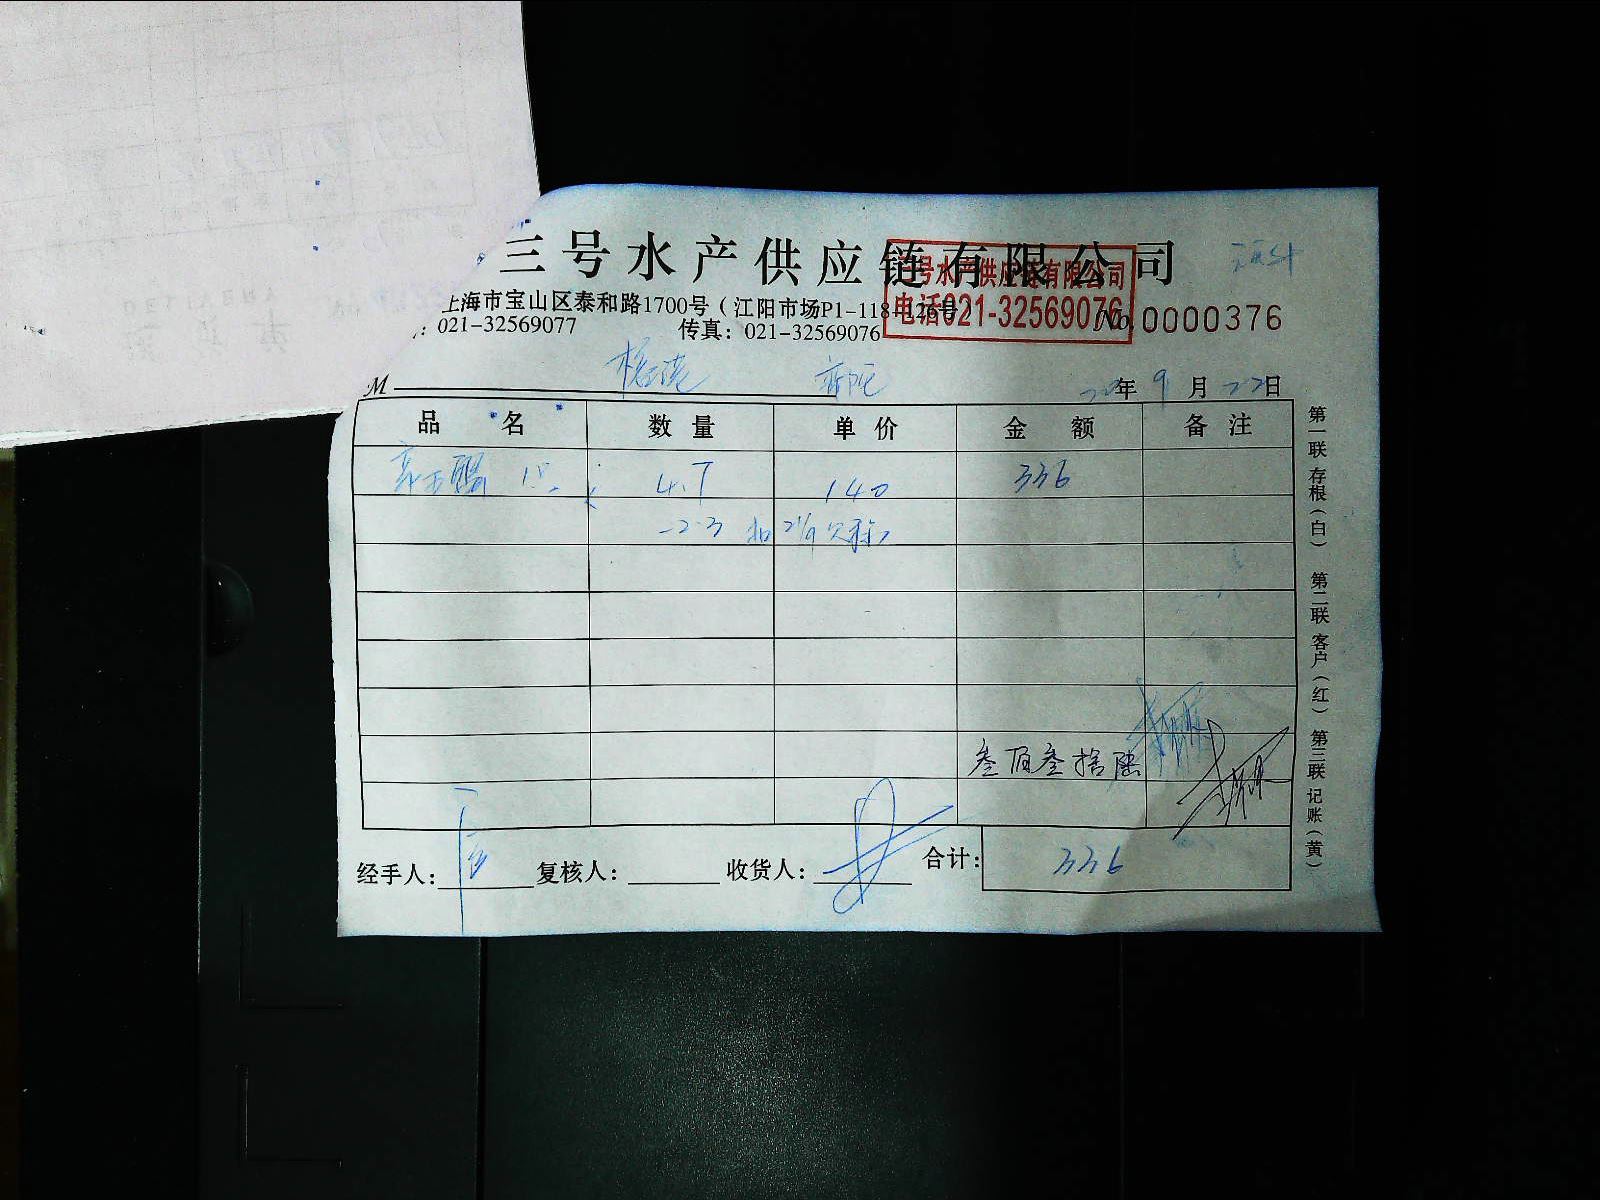 三号水产供应链有限公司
号水产供应链有限公司
电话021-32569076
上海市宝山区泰和路1700号（江阳市场P1-118-126号）
: 021-32569077 传真: 021-32569076
No 0000376
M
20年9月22日
品 名 数 量 单 价 金 额 备 注
4.7 140 336
-2.3 扣 21/9 欠称
叁佰叁拾陆
经手人: 复核人: 收货人: 合计: 336
第一联 存根（白） 第二联 客户（红） 第三联 记账（黄）